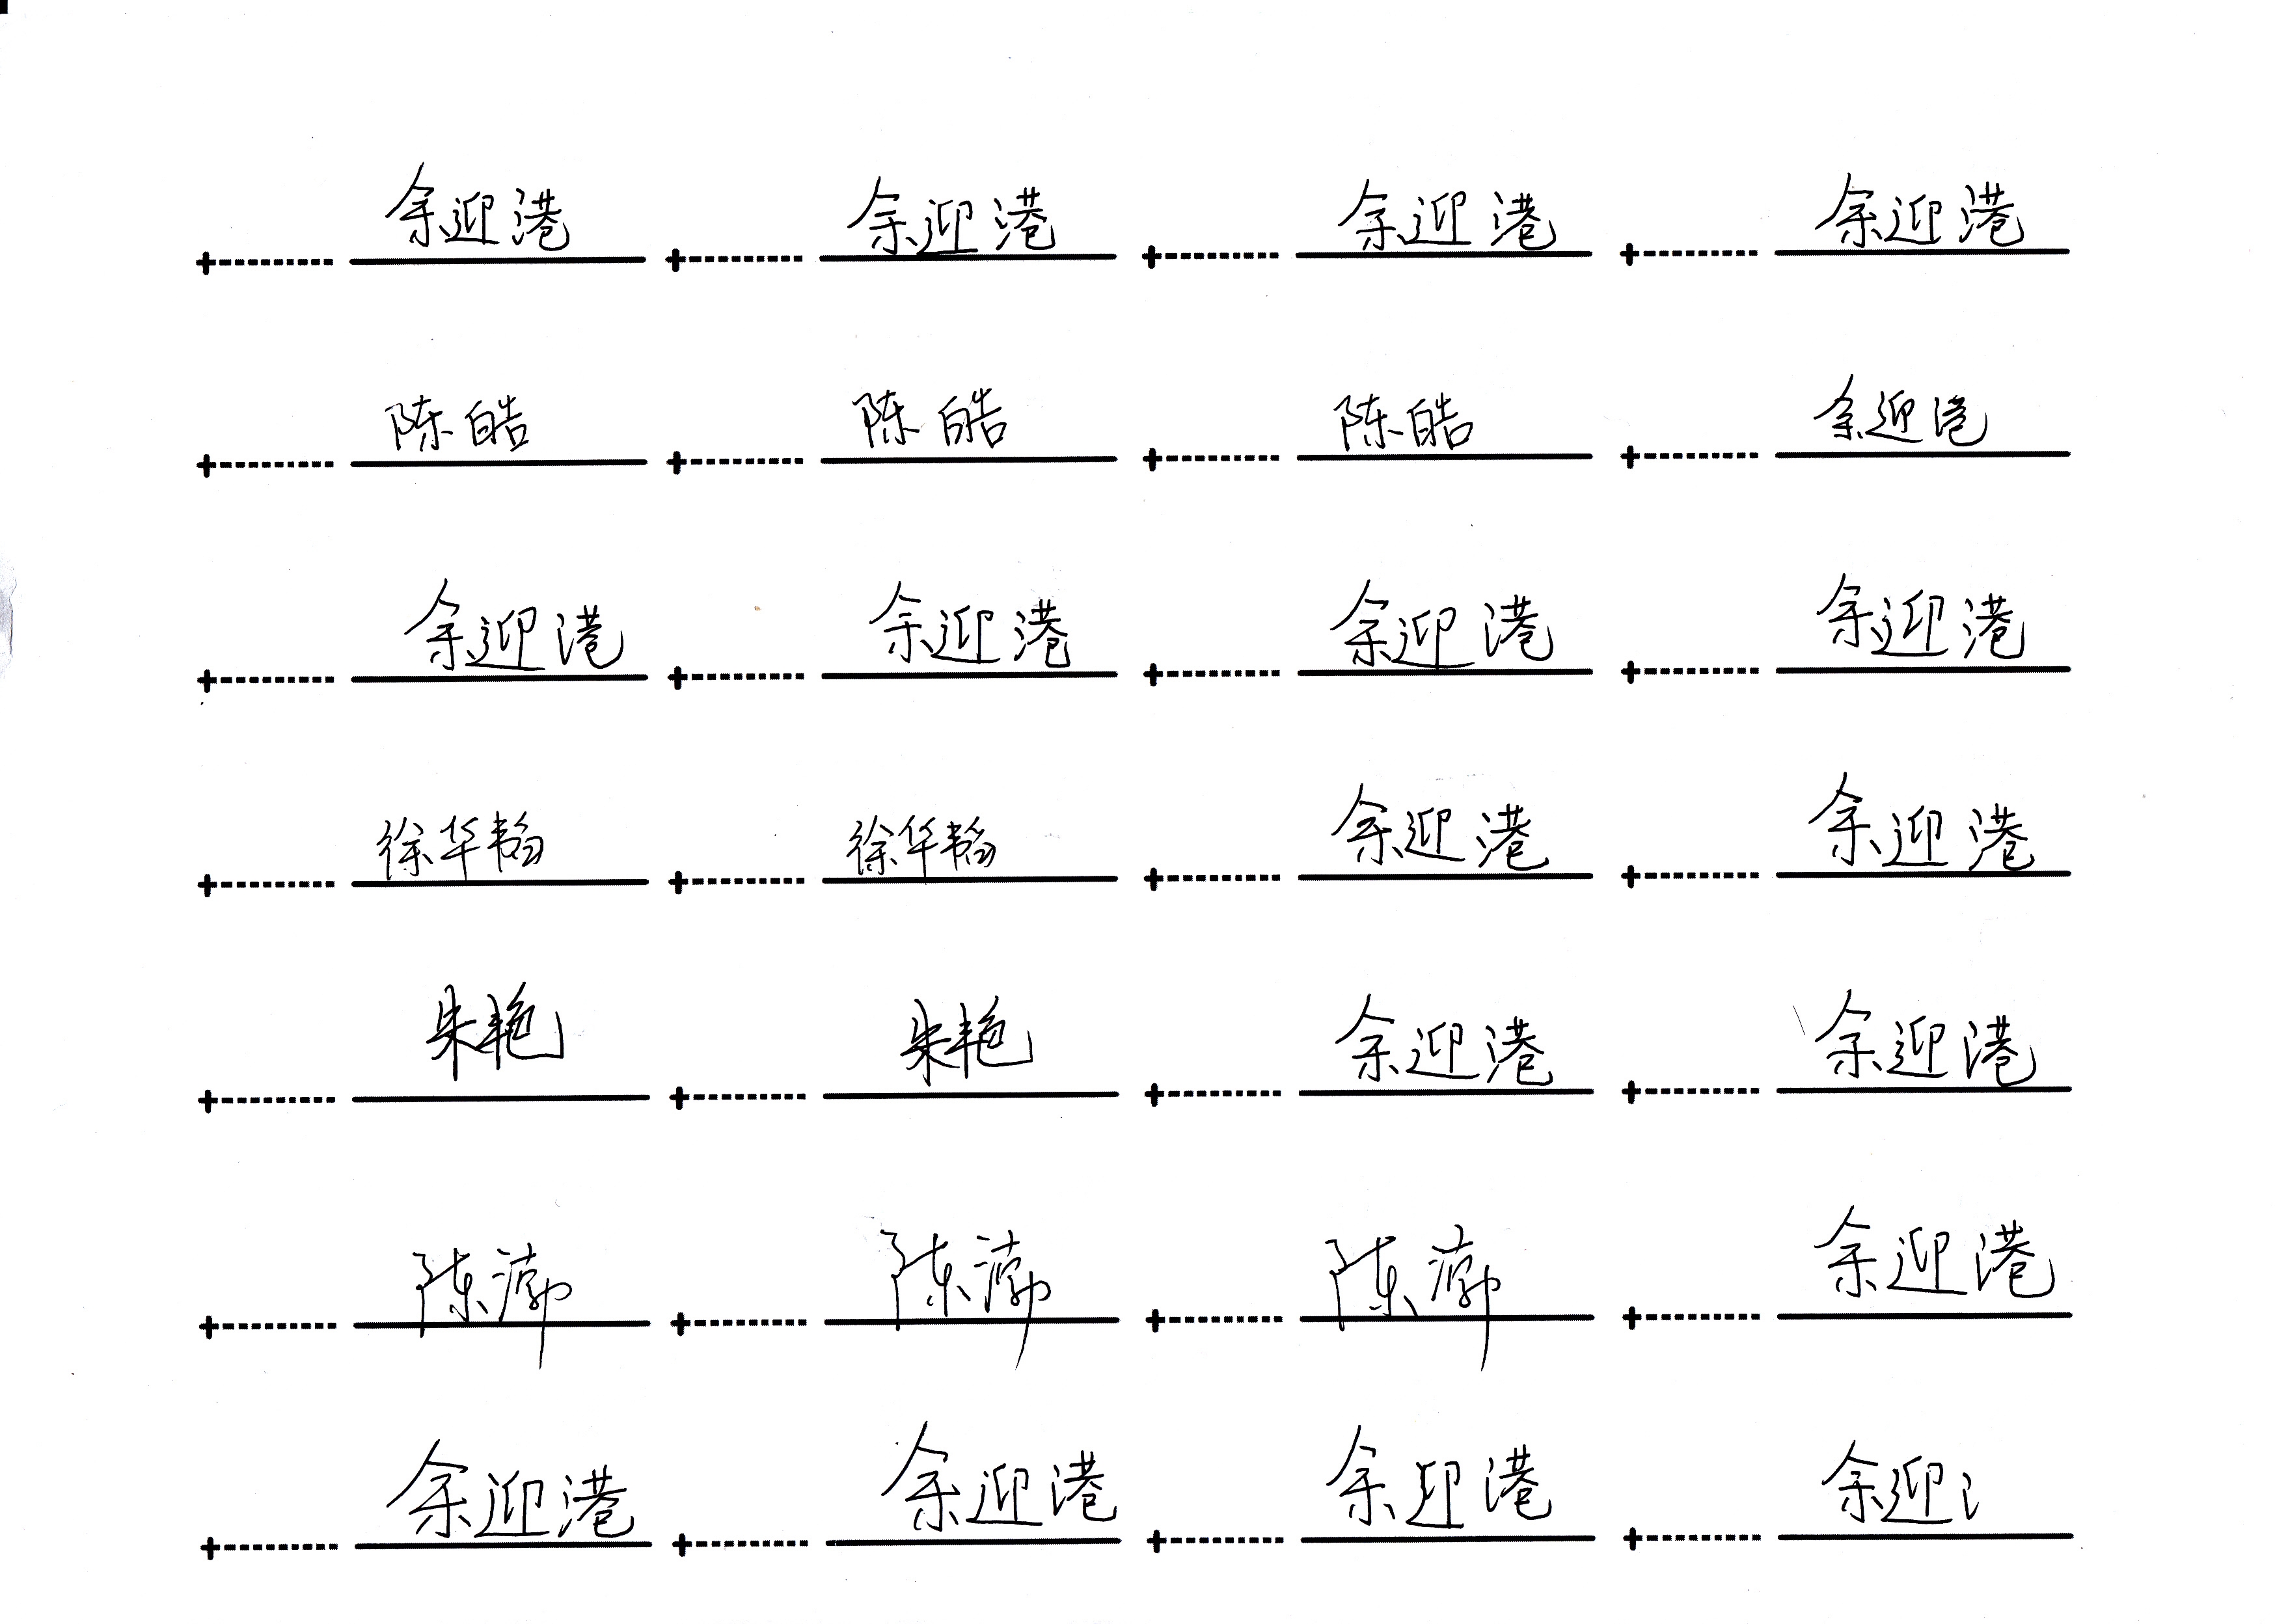 余迎港 余迎港 余迎港 余迎港
陈皓 陈皓 陈皓 余迎港
余迎港 余迎港 余迎港 余迎港
徐华韬 徐华韬 余迎港 余迎港
朱艳 朱艳 余迎港 余迎港
陈漷 陈漷 陈漷 余迎港
余迎港 余迎港 余迎港 余迎氵